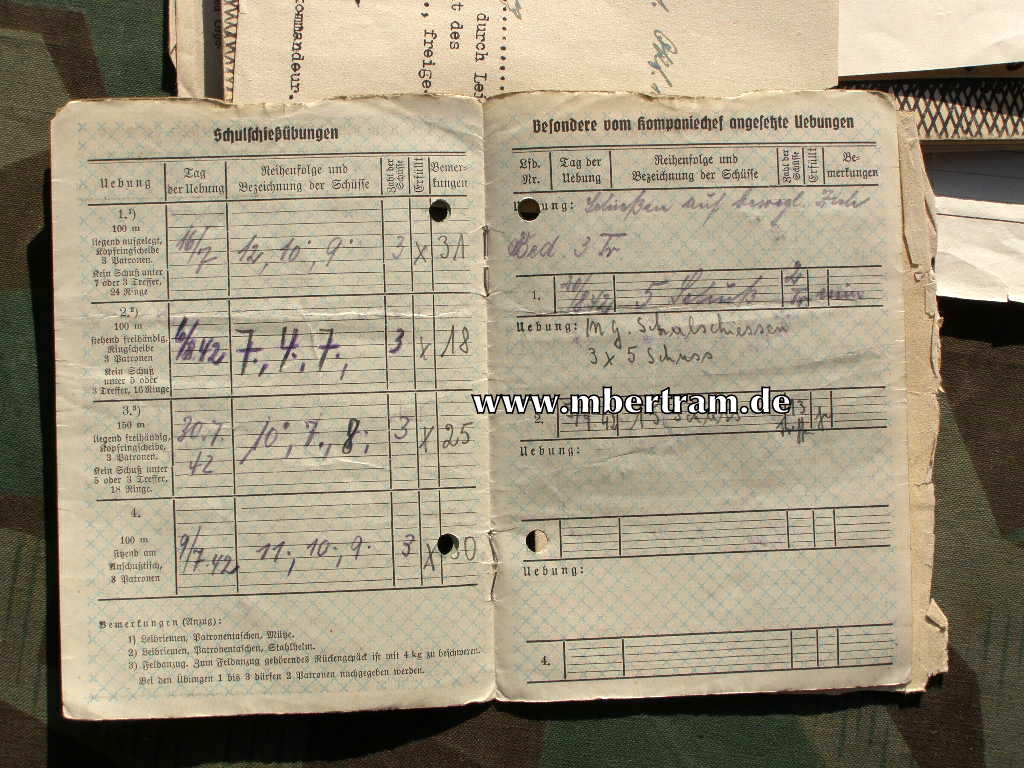 ommandeur.
., freige.
t des
durch Lei
Schulschießübungen
Uebung
Tag der Uebung
Reihenfolge und Bezeichnung der Schüsse
Zahl der Schüsse
Erfüllt
Bemerkungen
1.¹)
100 m
liegend aufgelegt,
Kopfringscheibe
3 Patronen.
Kein Schuß unter
7 oder 3 Treffer,
24 Ringe
16/7
12, 10, 9
3
x
31
2.²)
100 m
stehend freihändig,
Ringscheibe
3 Patronen
Kein Schuß
unter 5 oder
3 Treffer, 16 Ringe
42
7, 4, 7,
3
x
18
3.³)
150 m
liegend freihändig,
Kopfringscheibe,
3 Patronen,
Kein Schuß unter
5 oder 3 Treffer,
18 Ringe.
30.7.
42
10, 7, 8,
3
x
25
4.
100 m
sitzend am
Anschußtisch,
3 Patronen
9/7.42
11, 10, 9
3
x
30
Bemerkungen (Anzug):
1) Leibriemen, Patronentaschen, Mütze.
2) Leibriemen, Patronentaschen, Stahlhelm.
3) Feldanzug. Zum Feldanzug gehörendes Rückengepäck ist mit 4 kg zu beschweren.
Bei den Übungen 1 bis 3 dürfen 2 Patronen nachgegeben werden.
Besondere vom Kompaniechef angesetzte Uebungen
Lfd. Nr.
Tag der Uebung
Reihenfolge und Bezeichnung der Schüsse
Zahl der Schüsse
Erfüllt
Bemerkungen
Uebung: Schießen auf bewegl. Ziele
Bed 3 Tr
1.
42
5 Schuß
2 Tr
Uebung: M G. Schulschiessen
3 x 5 Schuss
www.mbertram.de
2.
Uebung:
Uebung:
4.